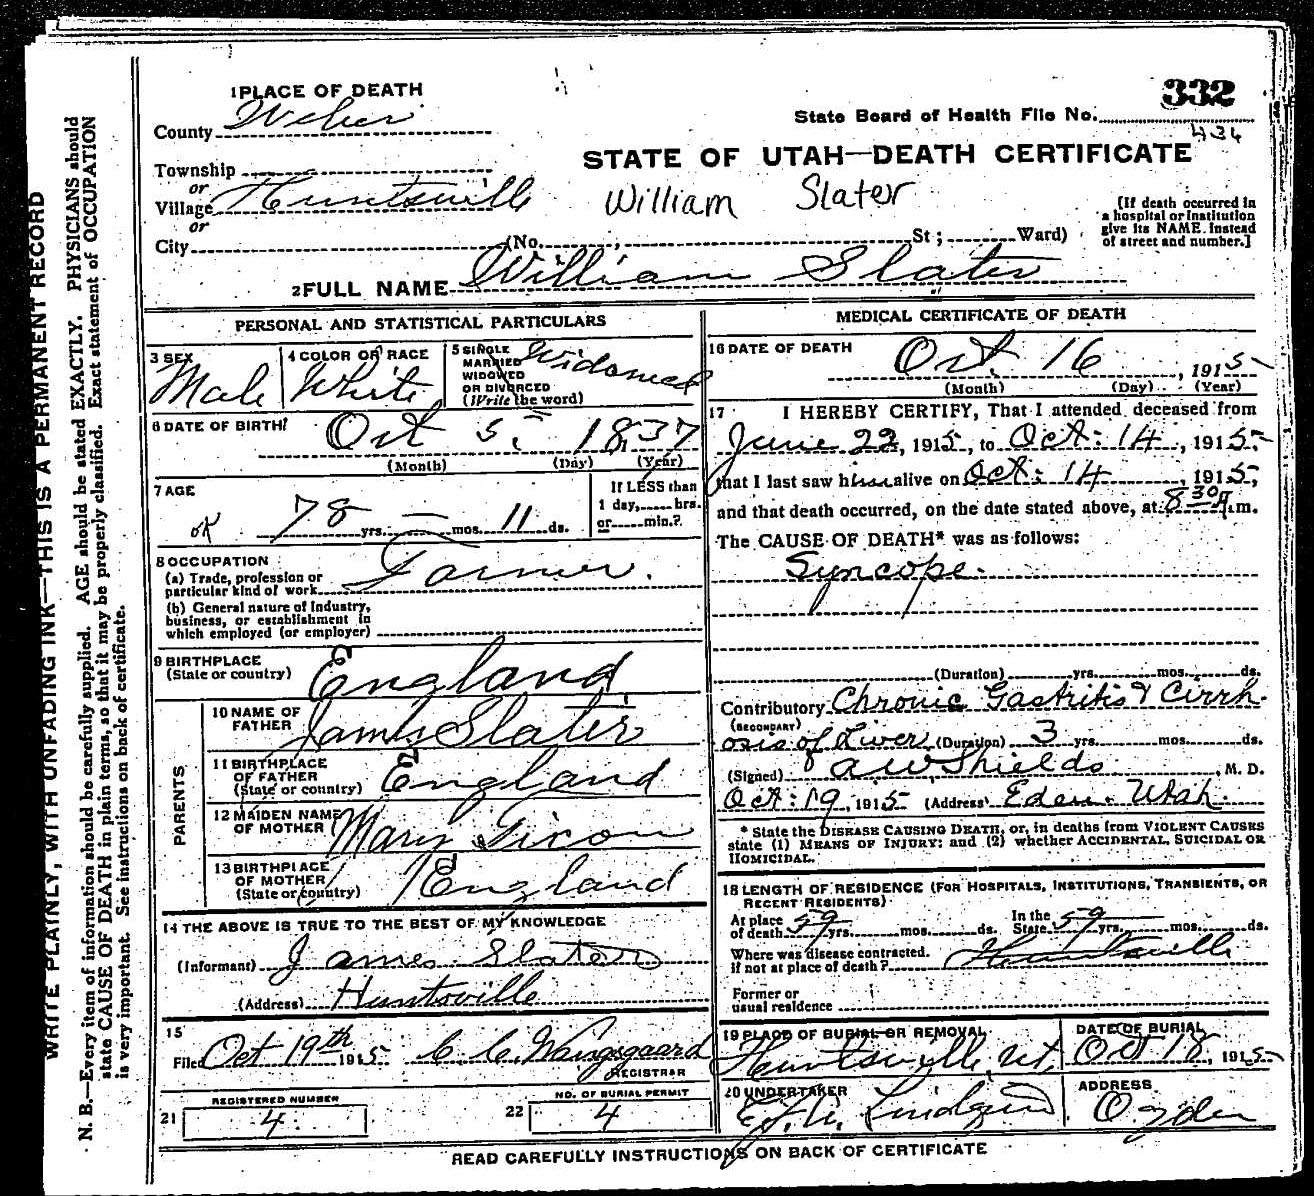 332
1 PLACE OF DEATH
County Weber
State Board of Health File No.
434
STATE OF UTAH—DEATH CERTIFICATE
Township
or
Village Huntsville
or
City (No. , St; Ward)
William Slater
[If death occurred in
a hospital or institution
give its NAME. instead
of street and number.]
2 FULL NAME William Slater
PERSONAL AND STATISTICAL PARTICULARS
3 SEX
Male
4 COLOR OR RACE
White
5 SINGLE
MARRIED
WIDOWED
OR DIVORCED
(Write the word)
Widowed
6 DATE OF BIRTH
Oct 5 1837
(Month) (Day) (Year)
7 AGE
OK 78 yrs. — mos. 11 ds.
If LESS than
1 day, hrs.
or min.?
8 OCCUPATION
(a) Trade, profession or
particular kind of work Farmer.
(b) General nature of Industry,
business, or establishment in
which employed (or employer)
9 BIRTHPLACE
(State or country) England
PARENTS
10 NAME OF
FATHER James Slater
11 BIRTHPLACE
OF FATHER
(State or country) England
12 MAIDEN NAME
OF MOTHER Mary
13 BIRTHPLACE
OF MOTHER
(State or country) England
14 THE ABOVE IS TRUE TO THE BEST OF MY KNOWLEDGE
(Informant) James Slater
(Address) Huntsville
15
File Oct 19th 1915 C. C. Wangsgaard
REGISTRAR
21 REGISTERED NUMBER
4
22 NO. OF BURIAL PERMIT
4
MEDICAL CERTIFICATE OF DEATH
16 DATE OF DEATH
Oct. 16, 1915
(Month) (Day) (Year)
17 I HEREBY CERTIFY, That I attended deceased from
June 22, 1915, to Oct. 14, 1915
that I last saw him alive on Oct. 14, 1915,
and that death occurred, on the date stated above, at 8 30 m.
The CAUSE OF DEATH* was as follows:
Syncope.
(Duration) yrs. mos. ds.
Contributory Chronic Gastritis & Cirrh-
(SECONDARY)
osis of Liver (Duration) 3 yrs. mos. ds.
(Signed) A W Shields, M. D.
Oct. 19, 1915 (Address) Eden. Utah.
* State the DISEASE CAUSING DEATH, or, in deaths from VIOLENT CAUSES
state (1) MEANS OF INJURY; and (2) whether ACCIDENTAL, SUICIDAL OR
HOMICIDAL.
18 LENGTH OF RESIDENCE (FOR HOSPITALS, INSTITUTIONS, TRANSIENTS, OR
RECENT RESIDENTS)
At place
of death 59 yrs. mos. ds.
In the
State 59 yrs. mos. ds.
Where was disease contracted.
if not at place of death? Huntsville
Former or
usual residence
19 PLACE OF BURIAL OR REMOVAL
Huntsville, Ut.
DATE OF BURIAL
Oct 18, 1915
20 UNDERTAKER
Lindquist
ADDRESS
Ogden
READ CAREFULLY INSTRUCTIONS ON BACK OF CERTIFICATE
WRITE PLAINLY, WITH UNFADING INK—THIS IS A PERMANENT RECORD
N. B.—Every item of information should be carefully supplied. AGE should be stated EXACTLY. PHYSICIANS should
state CAUSE OF DEATH in plain terms, so that it may be properly classified. Exact statement of OCCUPATION
is very important. See instructions on back of certificate.